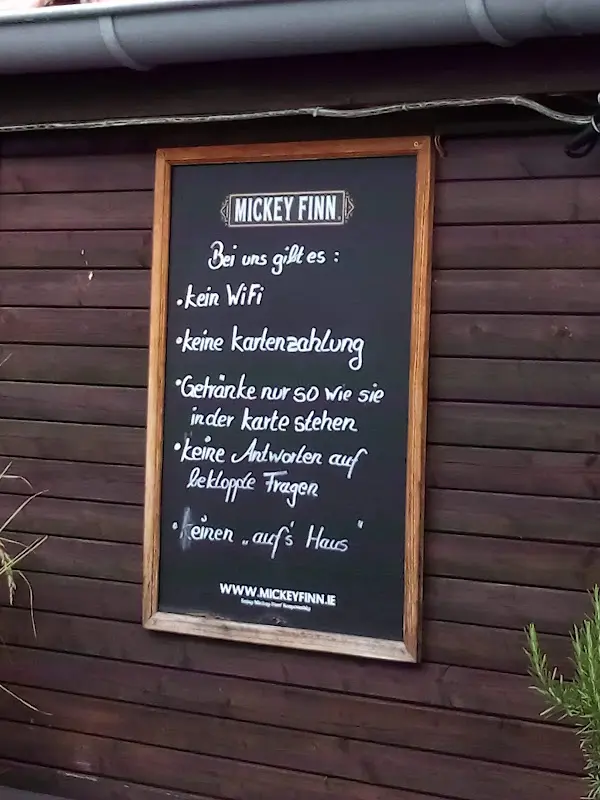 MICKEY FINN
Bei uns gilt es :
• kein WiFi
• keine Kartenzahlung
• Getränke nur so wie sie
in der Karte stehen
• keine Antworten auf
bekloppte Fragen
• keinen „auf's Haus"
WWW.MICKEYFINN.IE
Enjoy Mickey Finn Responsibly